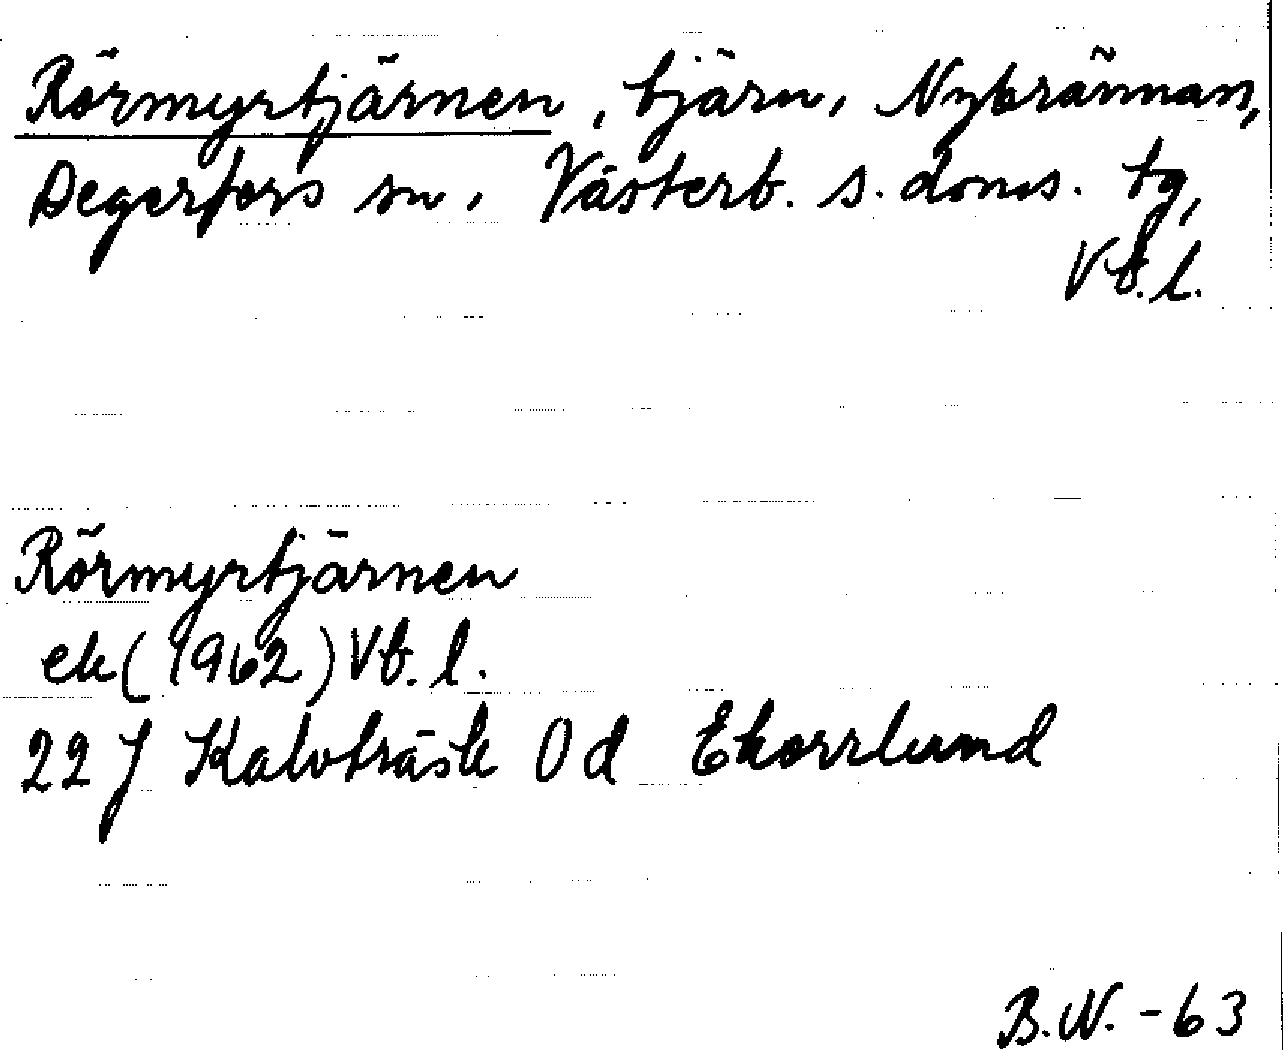 Rörmyrtjärnen, tjärn, Nybrännan,
Degerfors sn, Västerb. s. doms. tg,
Vb. l.
Rörmyrtjärnen
ek (1962) Vb. l.
22 J Kalvträsk 0 d Ekorrlund
B.W. -63